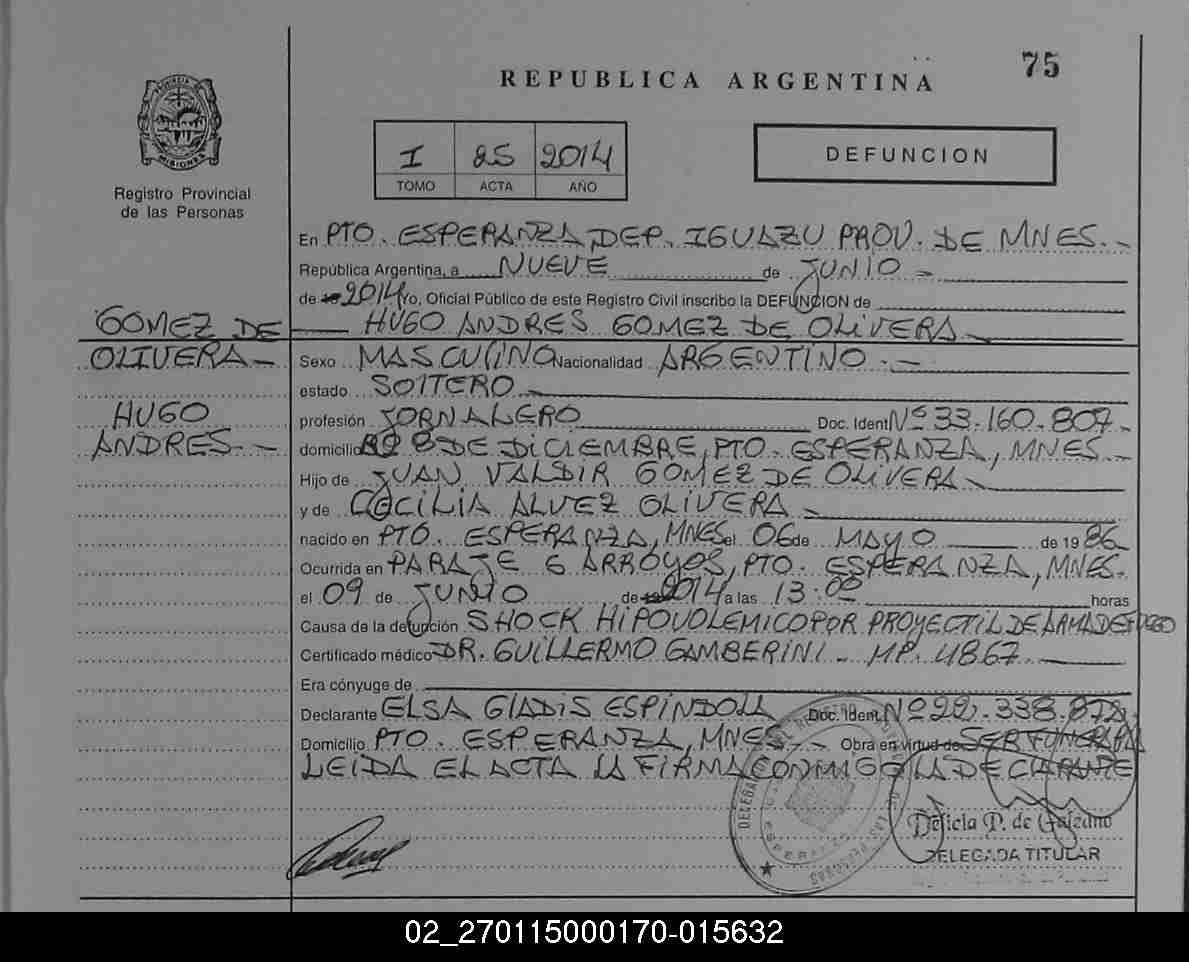 75
REPUBLICA ARGENTINA
PROVINCIA
MISIONES
Registro Provincial
de las Personas
I 25 2014
TOMO ACTA AÑO
DEFUNCION
En PTO. ESPERANZA, DEP. IGUAZU PROV. DE MNES.-
República Argentina, a NUEVE de JUNIO -
de 2014 Yo, Oficial Público de este Registro Civil inscribo la DEFUNCION de
GOMEZ DE
OLIVERA-
HUGO
ANDRES.-
HUGO ANDRES GOMEZ DE OLIVERA-
Sexo MASCULINO Nacionalidad ARGENTINO.-
estado SOLTERO
profesión JORNALERO Doc. Ident Nº 33.160.807.-
domicilio Bº 8 DE DICIEMBRE, PTO. ESPERANZA, MNES.-
Hijo de JUAN VALDIR GOMEZ DE OLIVERA-
y de CECILIA ALVEZ OLIVERA-
nacido en PTO. ESPERANZA, MNES el 06 de MAYO de 1986
Ocurrida en PARAJE 6 ARROYOS, PTO. ESPERANZA, MNES.
el 09 de JUNIO de 2014 a las 13:00 horas
Causa de la defunción SHOCK HIPOVOLEMICO POR PROYECTIL DE ARMA DE FUEGO
Certificado médico DR. GUILLERMO GAMBERINI - MP. 4867-
Era cónyuge de
Declarante ELSA GLADIS ESPINDOLA Doc. Ident. Nº 22.338.872.
Domicilio PTO. ESPERANZA, MNES.- Obra en virtud de SER FUNERARIA
LEIDA EL ACTA LA FIRMA CONMIGO LA DECLARANTE
ESPERANZA
Delicia P. de
DELEGADA TITULAR
02_270115000170-015632